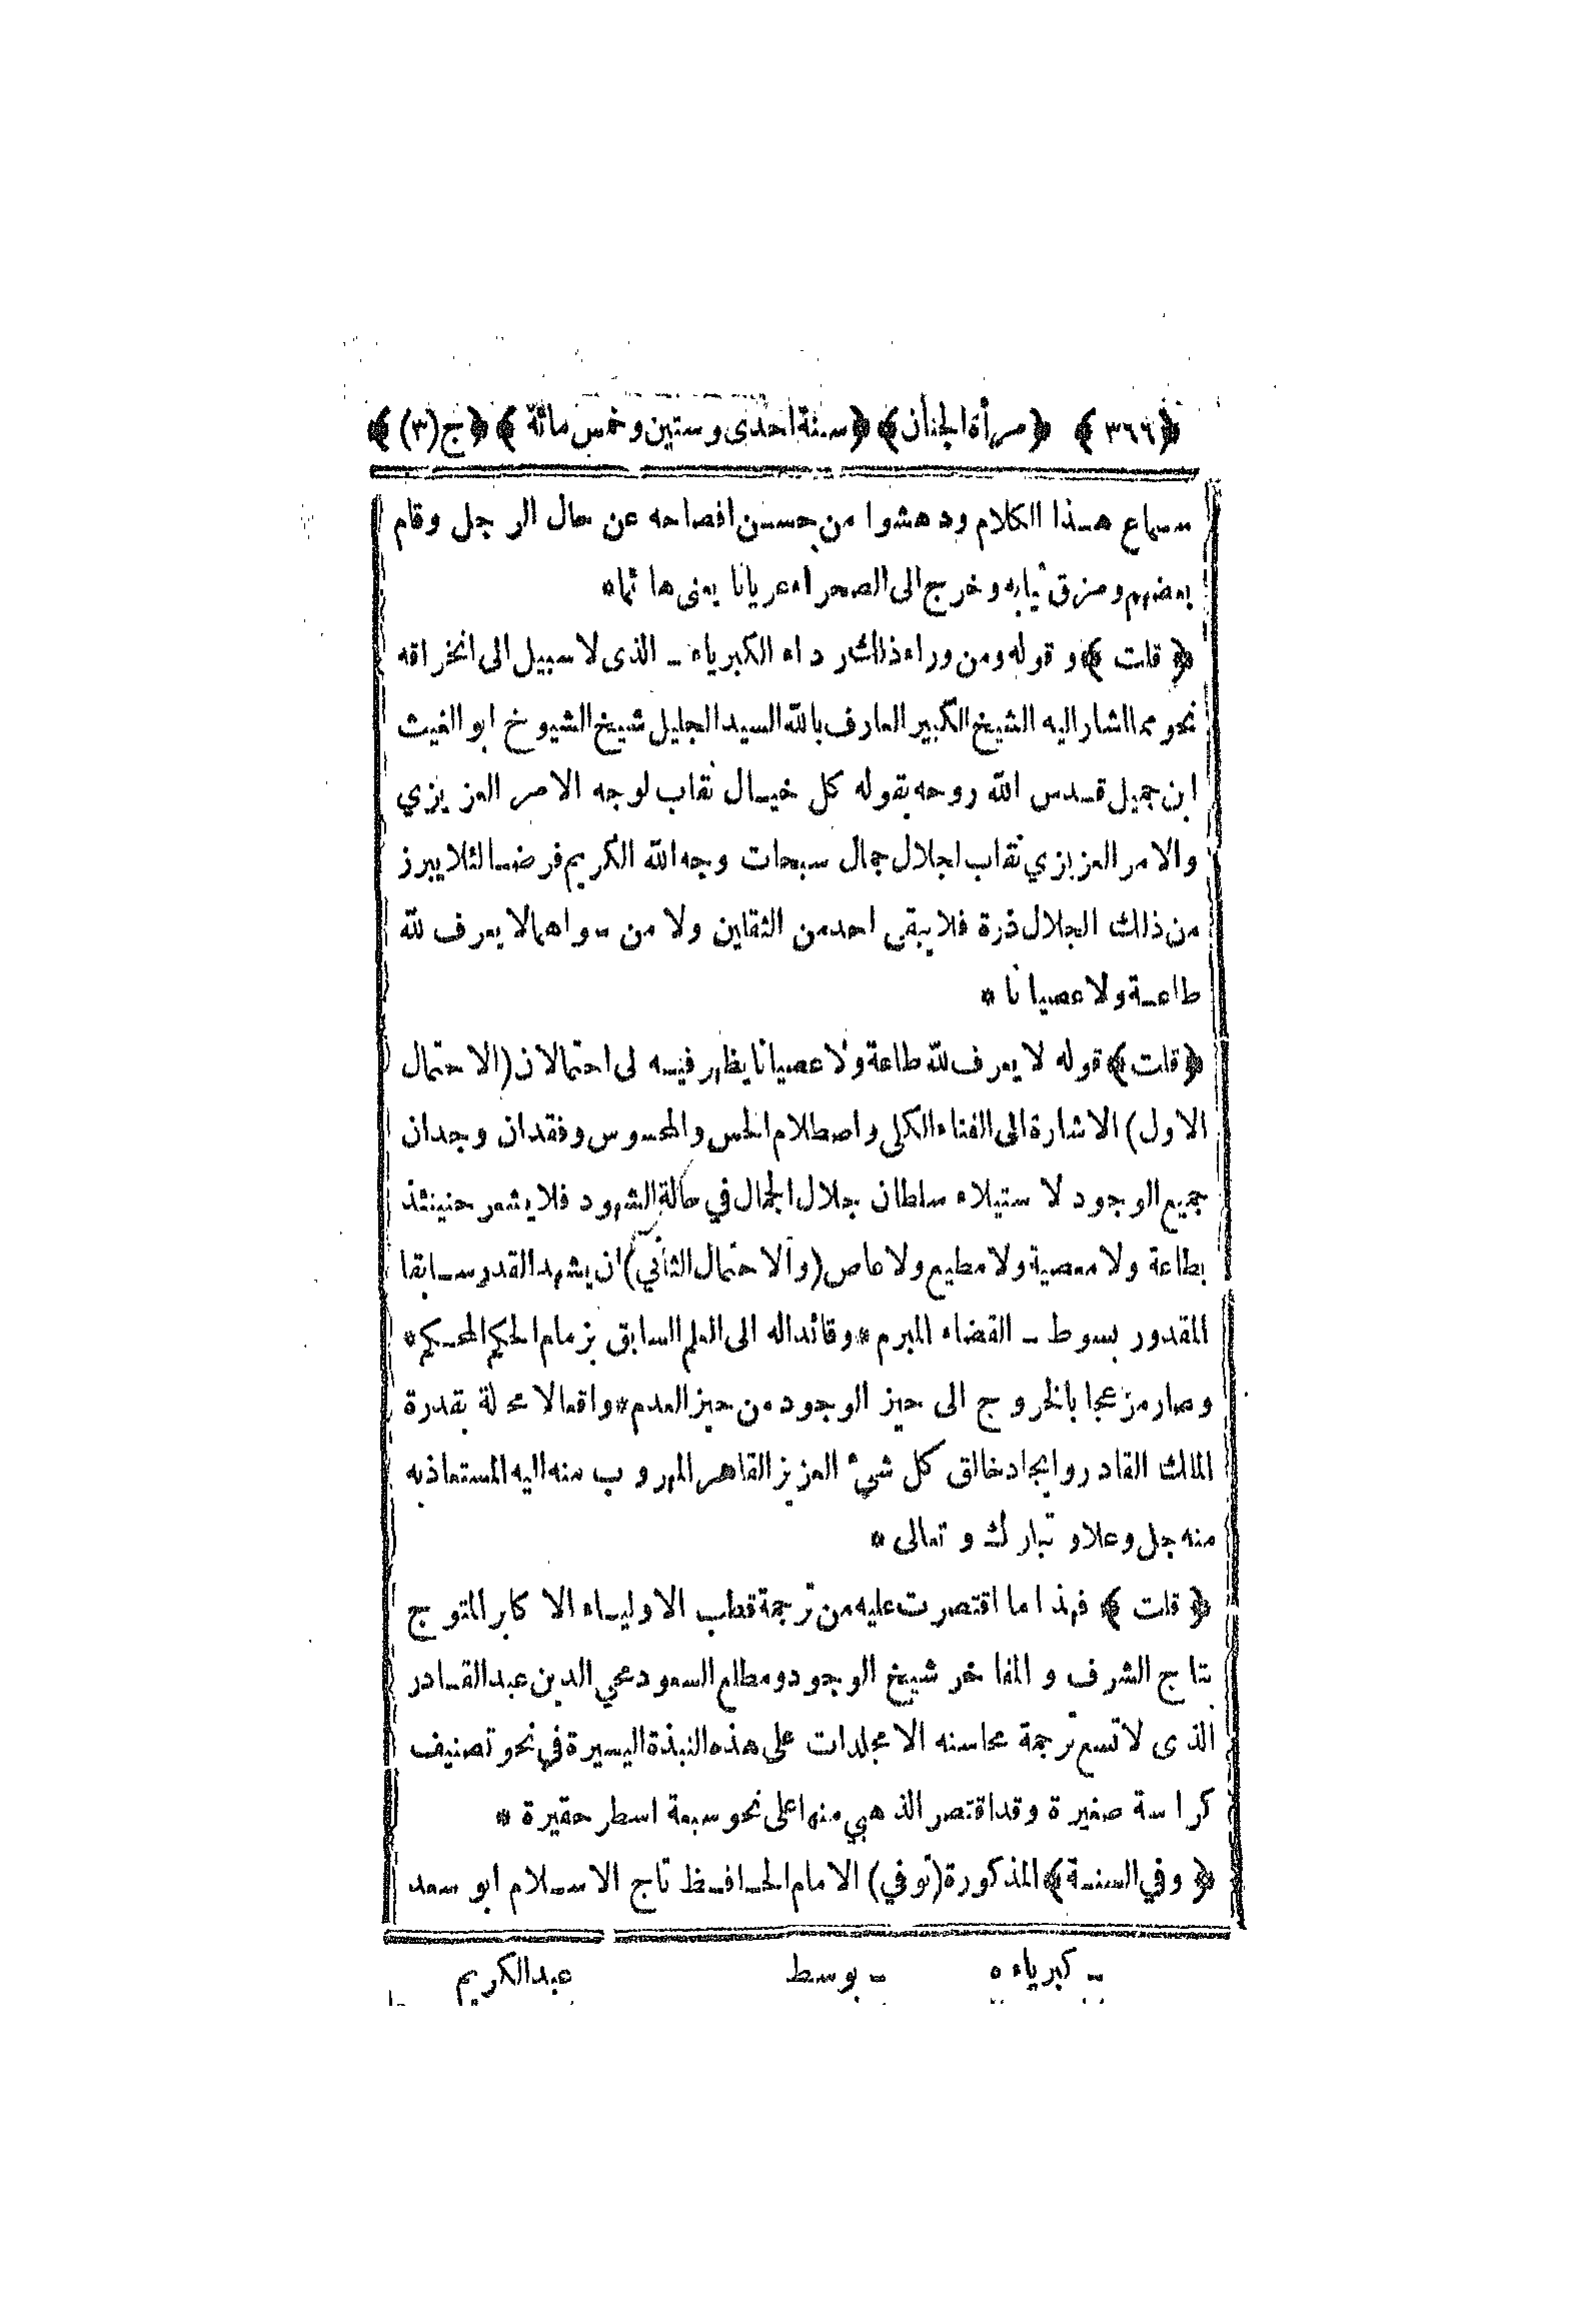 ﴿٣٦٦﴾ ﴿مرأة الجنان﴾ ﴿سنة احدى وستين وخمس مائة﴾ ﴿ج (٣)﴾
سماع هذا الكلام ودهشوا من حسن افصاحه عن حال الرجل وقام
بعضهم ومزق ثيابه وخرج الى الصحراء عريانا يعنى هائما*
﴿قلت﴾ وقوله ومن وراء ذلك رداء الكبرياء ـ الذى لا سبيل الى انخراقه
نحو مما اشار اليه الشيخ الكبير العارف بالله السيد الجليل شيخ الشيوخ ابو الغيث
ابن جميل قدس الله روحه بقوله كل خيال نقاب لوجه الامر العزيزي
والامر العزيزي نقاب اجلال جمال سبحات وجه الله الكريم فرضا لئلا يبرز
من ذلك الجلال ذرة فلا يبقى احد من الثقلين ولا من سواهما لا يعرف لله
طاعة ولا عصيانا *
﴿قلت﴾ قوله لا يعرف لله طاعة ولا عصيانا يظهر فيه لى احتمالان (الاحتمال
الاول) الاشارة الى الفناء الكلى واصطلام الحس والمحسوس وفقدان وجدان
جميع الوجود لاستيلاء سلطان جلال الجمال في حالة الشهود فلا يشعر حنيئذ
بطاعة ولا معصية ولا مطيع ولا عاص (والاحتمال الثاني) ان يشهد القدر سابقا
المقدور بسوط ـ القضاء المبرم * وقائدا له الى العلم السابق بزمام الحكم المحكم*
وصار مزعجا بالخروج الى حيز الوجود من حيز العدم * واقعا لا محلة بقدرة
المالك القادر وايجاد خالق كل شيء العزيز القاهر المهروب منه اليه المستعاذ به
منه جل وعلا وتبارك وتعالى *
﴿قلت﴾ فهذا ما اقتصرت عليه من ترجمة قطب الاولياء الاكابر المتوج
بتاج الشرف و المفاخر شيخ الوجود ومطلع السعود محي الدين عبد القادر
الذى لا تسع ترجمة محاسنه الا مجلدات على هذه النبذة اليسيرة في نحو تصنيف
كراسة صغيرة وقد اقتصر الذهبي منها على نحو سبعة اسطر حقيرة *
﴿وفي السنة﴾ المذكورة (توفي) الامام الحافظ تاج الاسلام ابو سعد
ـ كبرياءه ـ بوسط عبدالكريم